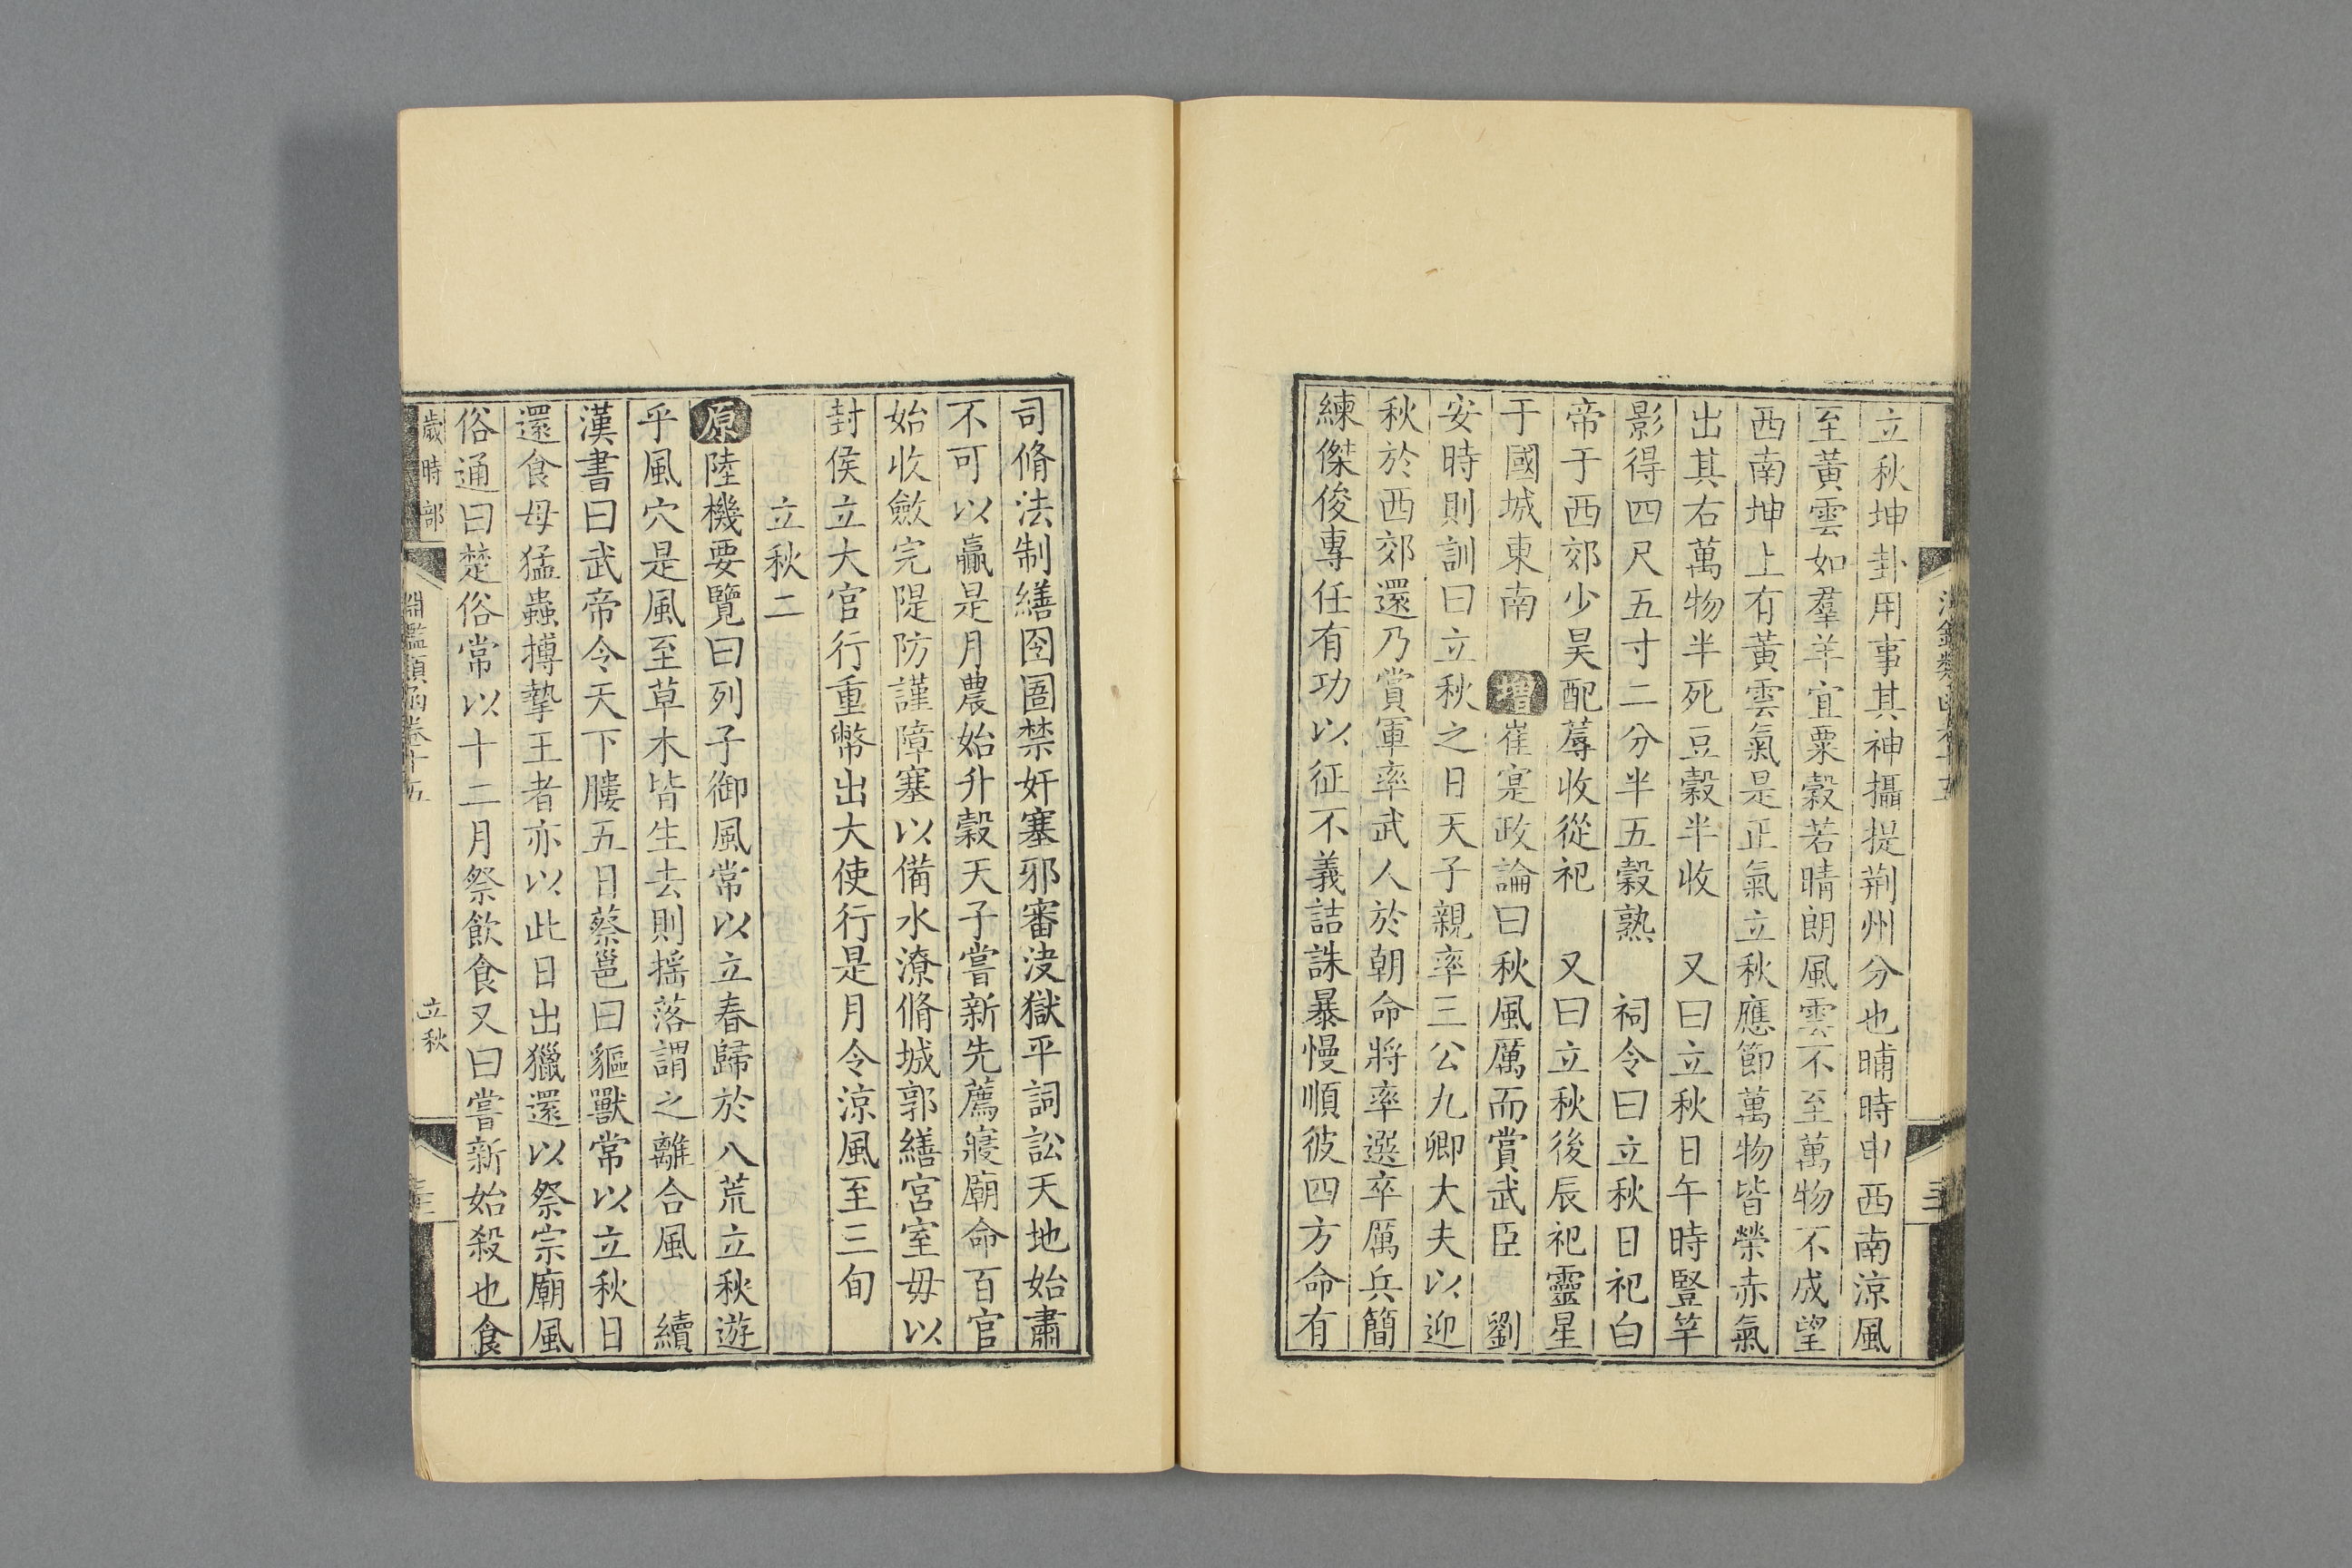 立秋坤卦用事其神攝提荆州分也晡時申西南涼風
至黃雲如羣羊宜粟穀若晴朗風雲不至萬物不成望
西南坤上有黃雲氣是正氣立秋應節萬物皆榮赤氣
出其右萬物半死豆穀半收 又曰立秋日午時豎竿
影得四尺五寸二分半五穀熟 祠令曰立秋日祀白
帝于西郊少昊配蓐收從祀 又曰立秋後辰祀靈星
于國城東南 增崔寔政論曰秋風厲而賞武臣 劉
安時則訓曰立秋之日天子親率三公九卿大夫以迎
秋於西郊還乃賞軍率武人於朝命將率選卒厲兵簡
練傑俊專任有功以征不義詰誅暴慢順彼四方命有
司脩法制繕囹圄禁奸塞邪審決獄平詞訟天地始肅
不可以贏是月農始升穀天子嘗新先薦寢廟命百官
始收斂完隄防謹障塞以備水潦脩城郭繕宮室毋以
封侯立大官行重幣出大使行是月令涼風至三旬
立秋二
原陸機要覽曰列子御風常以立春歸於八荒立秋遊
乎風穴是風至草木皆生去則搖落謂之離合風 續
漢書曰武帝令天下膢五日蔡邕曰貙獸常以立秋日
還食母猛蟲搏摯王者亦以此日出獵還以祭宗廟風
俗通曰楚俗常以十二月祭飲食又曰嘗新始殺也食
歲時部
淵鑑類函卷十五
立秋